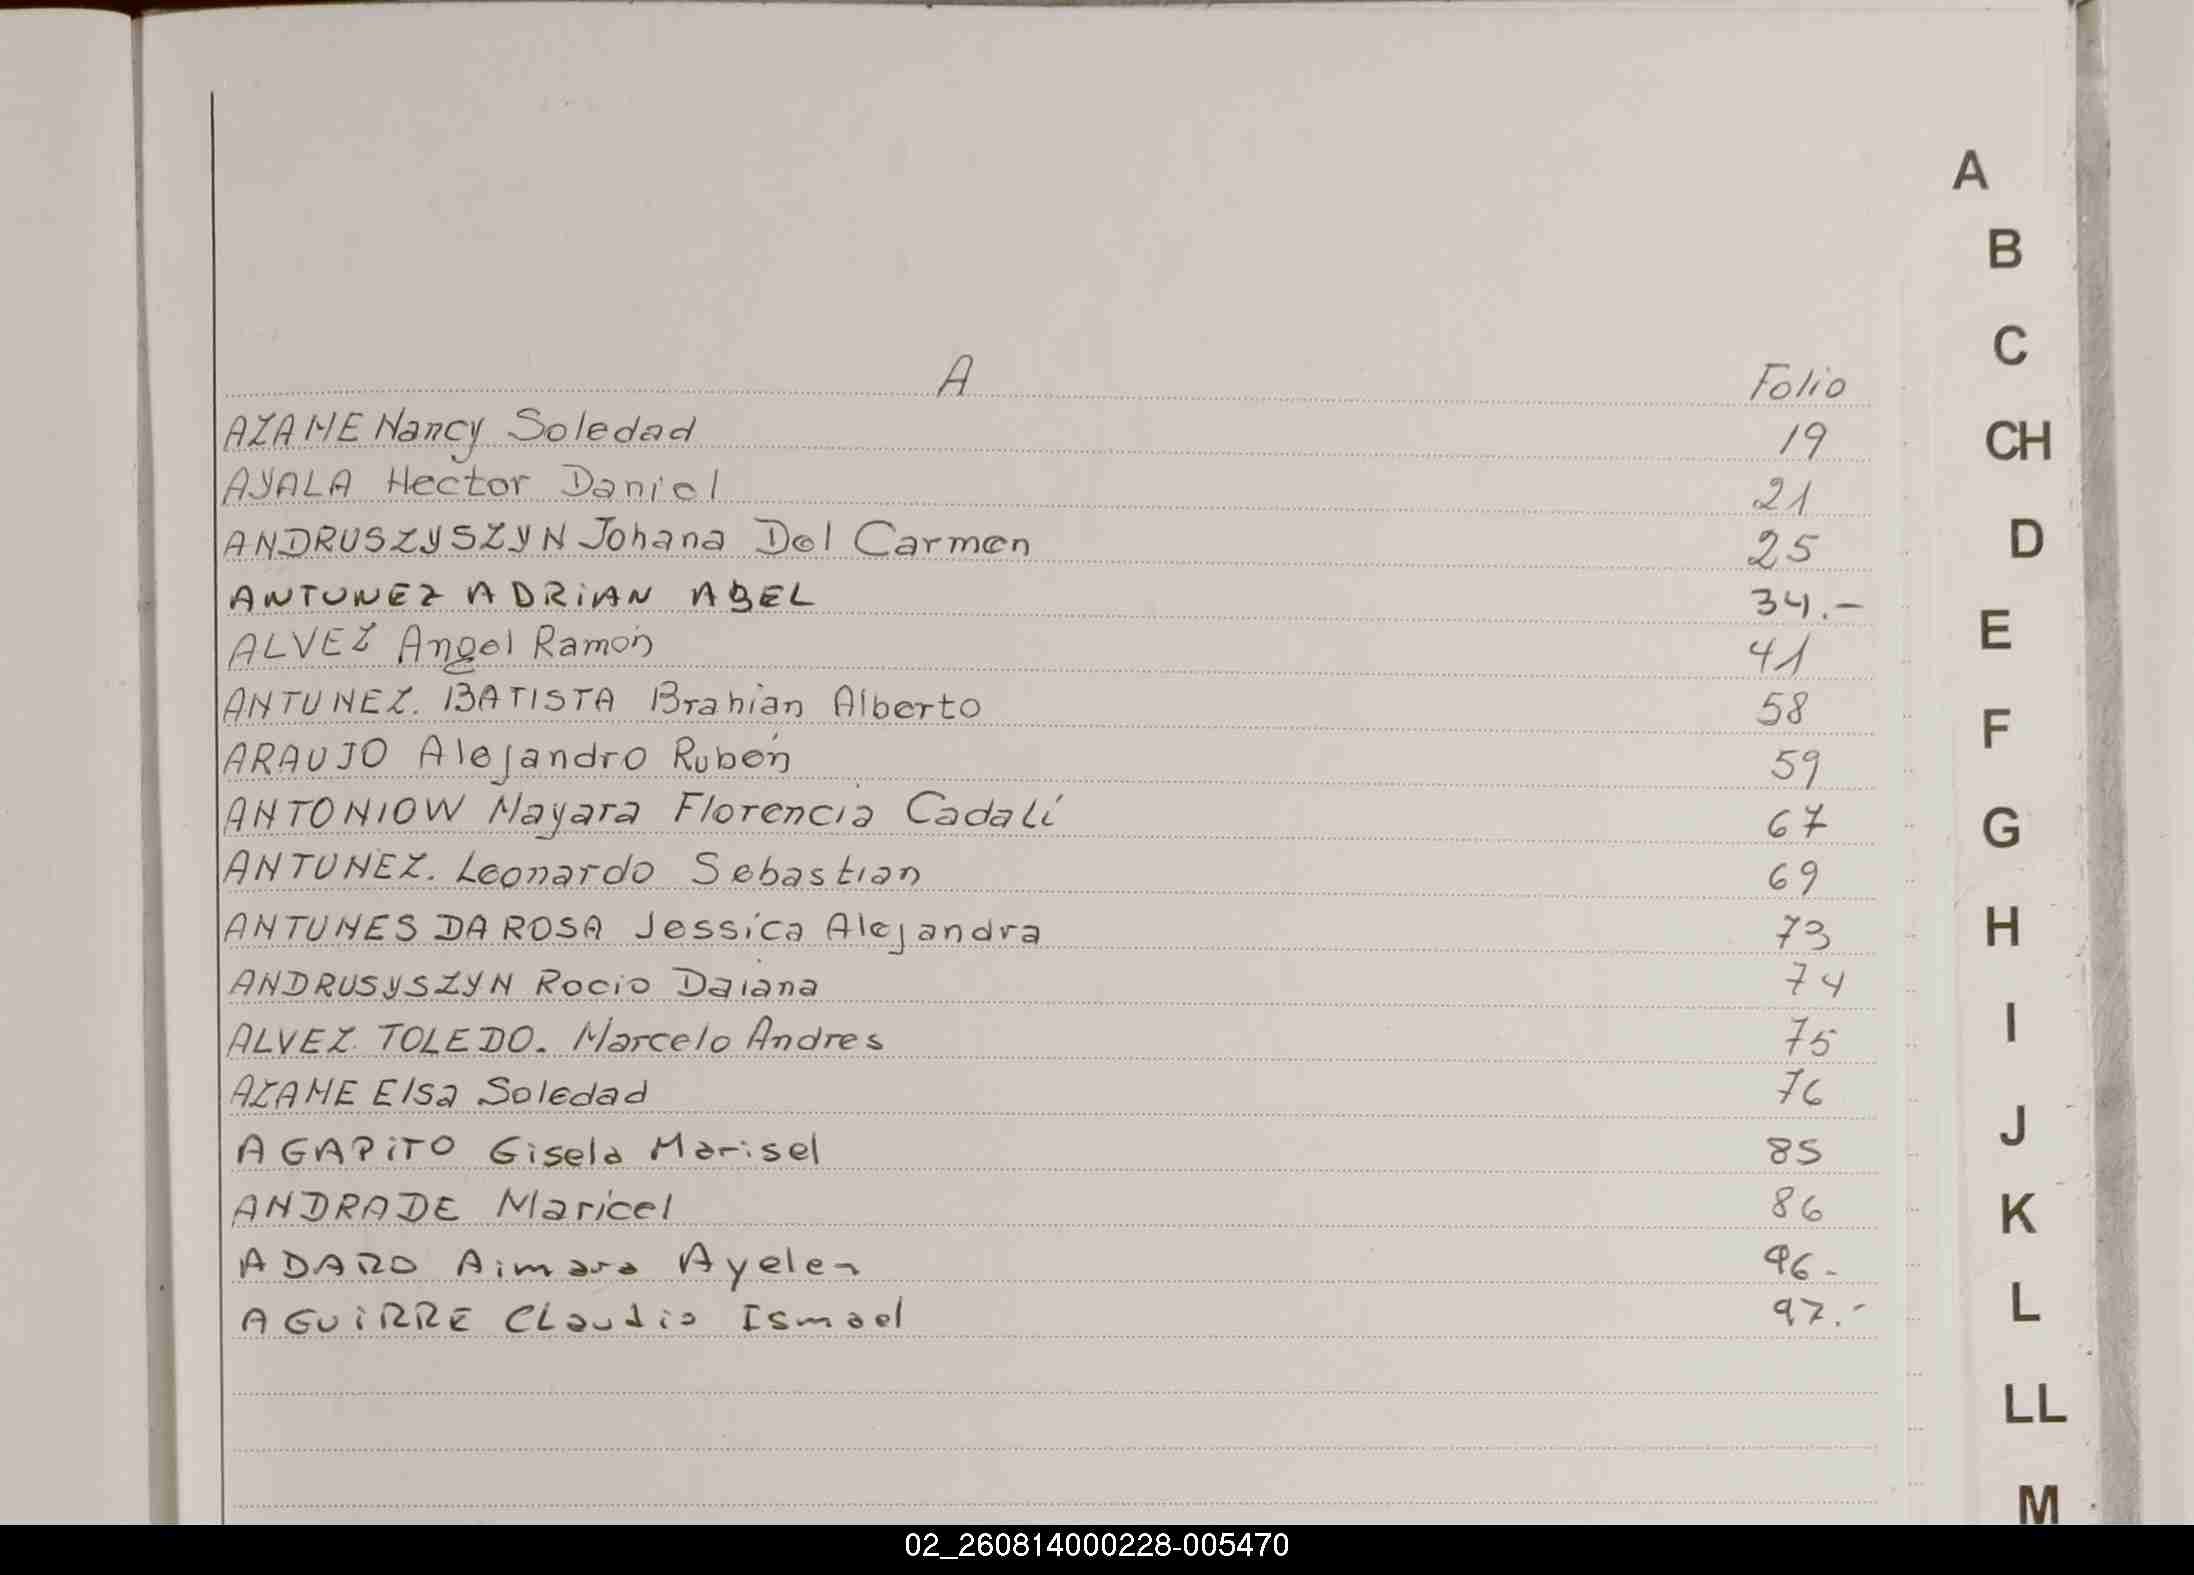 A Folio
AZAME Nancy Soledad 19
AYALA Hector Daniel 21
ANDRUSZYSZYN Johana Del Carmen 25
ANTUNEZ ADRiAN ABEL 34.-
ALVEZ Angel Ramón 41
ANTUNEZ. BATISTA Brahian Alberto 58
ARAUJO Alejandro Rubén 59
ANTONIOW Mayara Florencia Cadalí 67
ANTUNEZ. Leonardo Sebastian 69
ANTUNES DA ROSA Jessica Alejandra 73
ANDRUSYSZYN Rocio Daiana 74
ALVEZ TOLEDO. Marcelo Andres 75
AZAME Elsa Soledad 76
AGAPiTO Gisela Marisel 85
ANDRADE Maricel 86
ADARO Aimara Ayelen 96-
AGUiRRE CLaudio Ismael 97.-
A
B
C
CH
D
E
F
G
H
I
J
K
L
LL
M
02_260814000228-005470